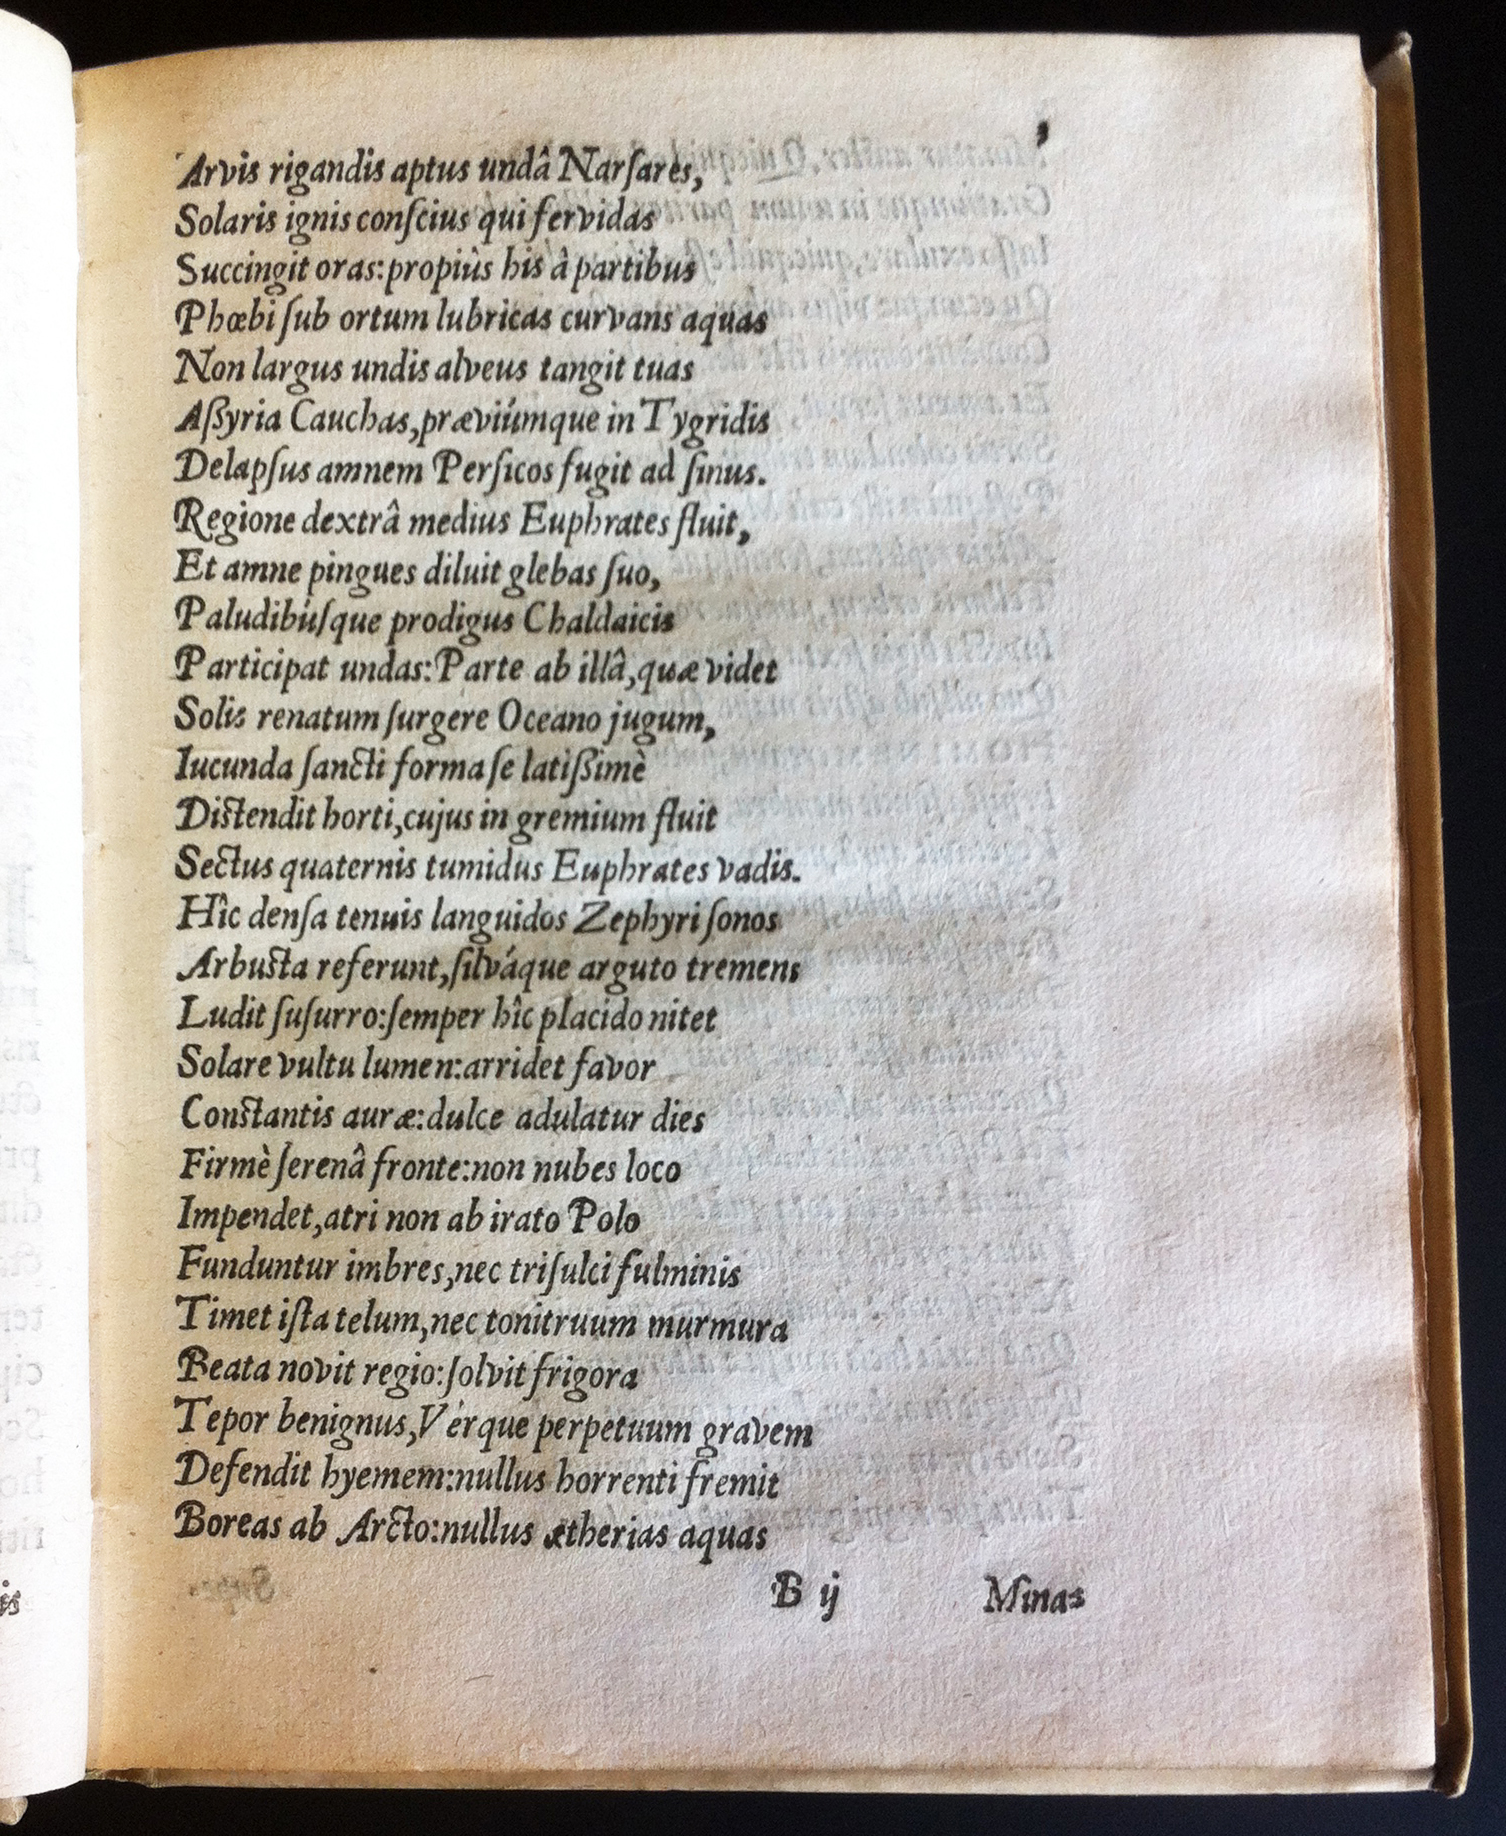 Arvis rigandis aptus undâ Narſares,
Solaris ignis conſcius qui fervidas
Succingit oras: propiùs his à partibus
Phœbi ſub ortum lubricas curvans aquas
Non largus undis alveus tangit tuas
Aßyria Cauchas, præviúmque in Tygridis
Delapſus amnem Perſicos fugit ad ſinus.
Regione dextrâ medius Euphrates fluit,
Et amne pingues diluit glebas ſuo,
Paludibúſque prodigus Chaldaicis
Participat undas: Parte ab illâ, quæ videt
Solis renatum ſurgere Oceano jugum,
Iucunda ſancti forma ſe latißimè
Distendit horti, cujus in gremium fluit
Sectus quaternis tumidus Euphrates vadis.
Hîc denſa tenuis languidos Zephyri ſonos
Arbusta referunt, ſilváque arguto tremens
Ludit ſuſurro: ſemper hîc placido nitet
Solare vultu lumen: arridet favor
Constantis auræ: dulce adulatur dies
Firmè ſerenâ fronte: non nubes loco
Impendet, atri non ab irato Polo
Funduntur imbres, nec triſulci fulminis
Timet iſta telum, nec tonitruum murmura
Beata novit regio: ſolvit frigora
Tepor benignus, Vérque perpetuum gravem
Defendit hyemem: nullus horrenti fremit
Boreas ab Arcto: nullus ætherias aquas
B ij Minas